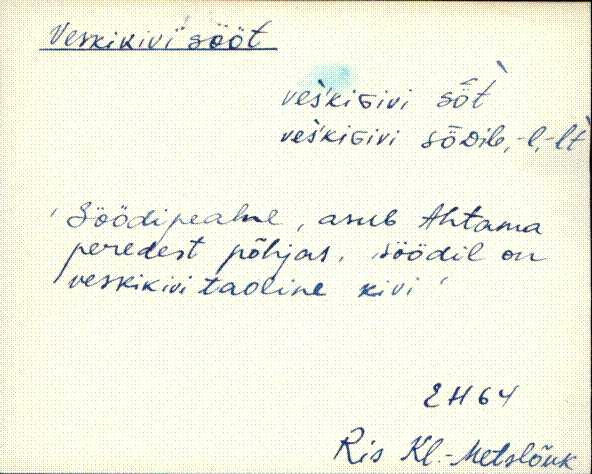 Veskikivi sööt
veš́kiɢivi sȫt̀
veš́kiɢivi sȫDile, -l, -lt
'Söödipealne, asub Ahtama
peredest põhjas, söödil on
veskikivi taoline kivi'
EH 64
Ris Kl.-Metslõuk